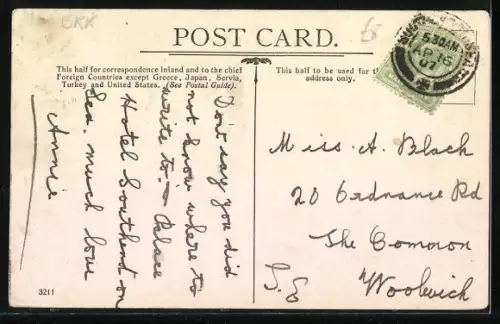 ERK
6
POST CARD.
This half for correspondence inland and to the chief
Foreign Countries except Greece, Japan, Servia,
Turkey and United States. (See Postal Guide).
This half to be used for
address only.
5.30AM
AP 16
07
Don't say you did
not know where to
write to:- Palace
Hotel Southend on
Sea. much love
Annie
Miss. A. Black
20 Ordnance Rd
The Common
Woolwich
S.E
3211